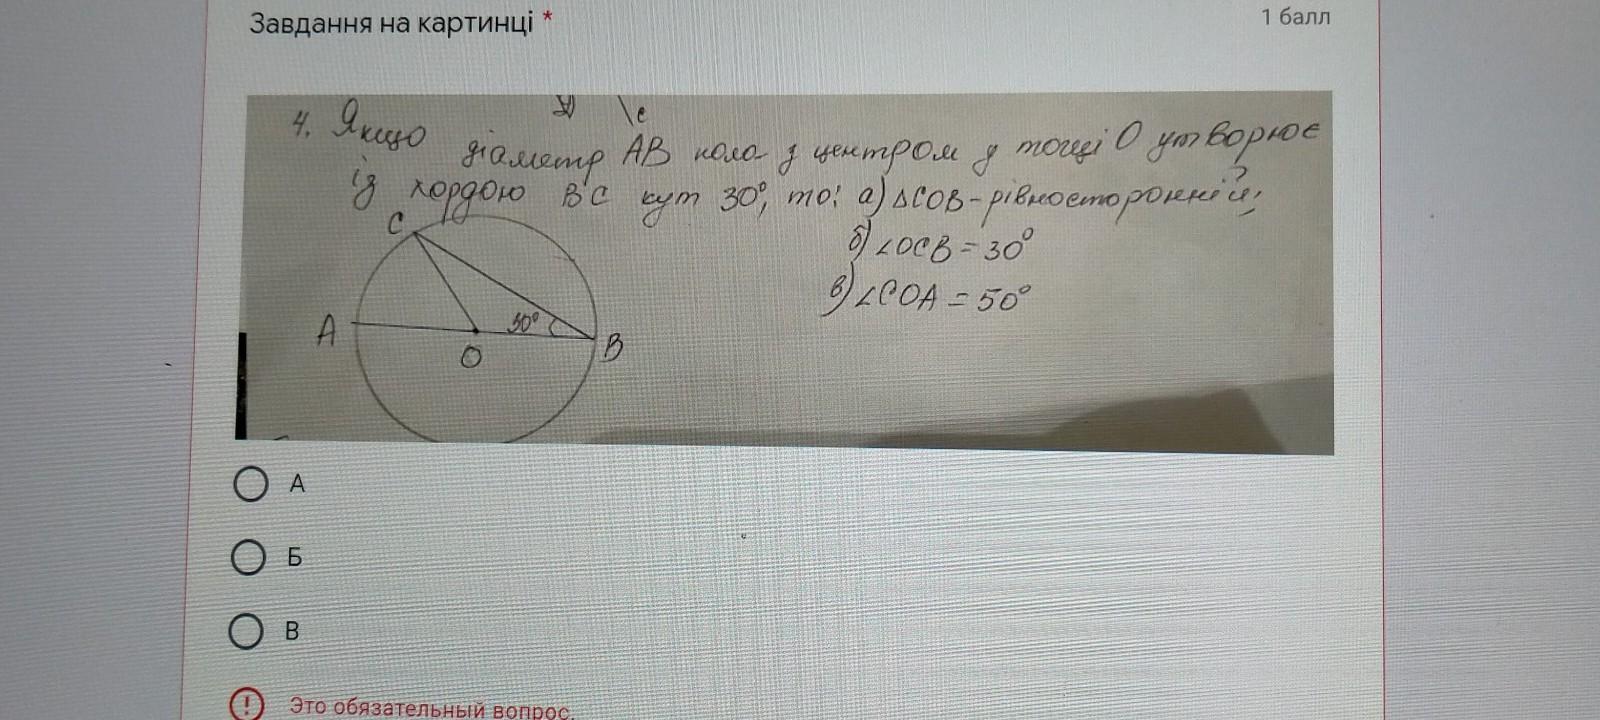 Завдання на картинці *
1 балл
4. Якщо діаметр АВ кола з центром у точці О утворює
із хордою ВС кут 30°, то: а) △СОВ - рівносторонній;
б) ∠ОСВ = 30°
в) ∠СОА = 50°
С
А
30°
О
В
А
Б
В
Это обязательный вопрос.